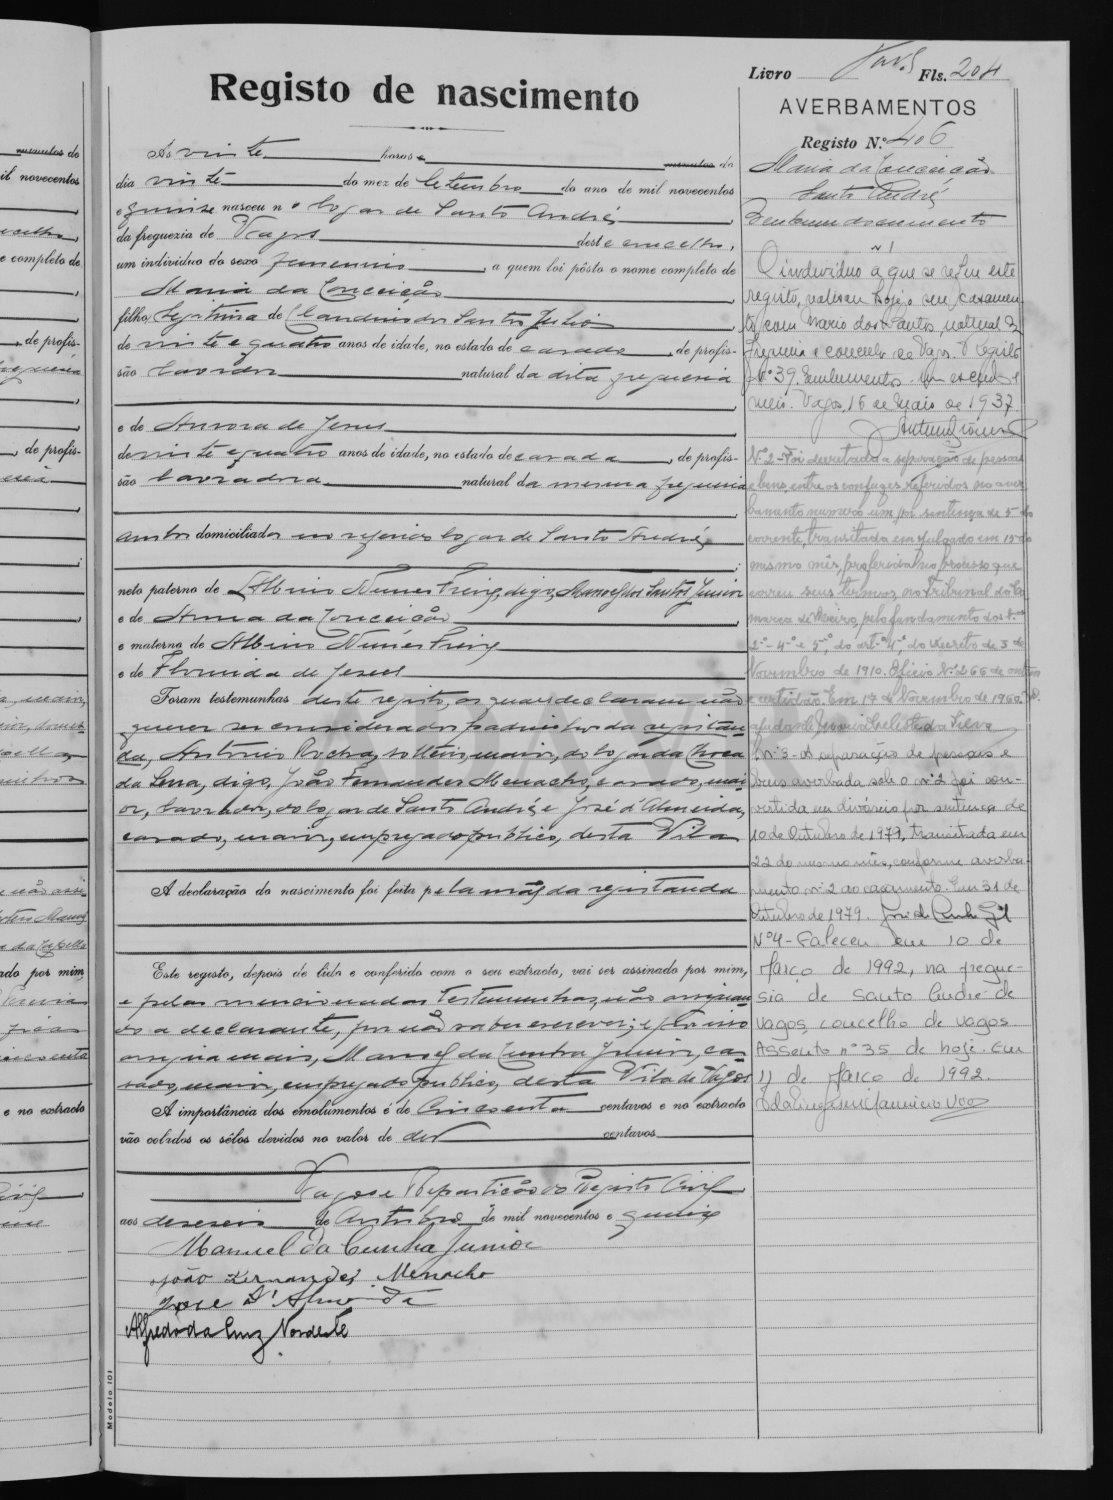 Registo de nascimento
As vinte horas e minutos do
dia vinte do mez de Setembro do ano de mil novecentos
e quinze nasceu n o logar de Santo André
da freguezia de Vagos deste concelho,
um individuo do sexo femenino, a quem foi pôsto o nome completo de
Maria da Conceição
filha legitima de Claudino dos Santos Junior
de vinte e quatro anos de idade, no estado de casado, de profis-
são lavrador natural da dita freguesia
e de Aurora de Jesus
de vinte e quatro anos de idade, no estado de casada, de profis-
são lavradora natural da mesma freguesia
ambos domiciliados no referido logar de Santo André
neto paterno de Albino Nunes Freire, digo, Manoel dos Santos Junior
e de Anna da Conceição
e materno de Albino Nunes Freire
e de Florinda de Jesus
Foram testemunhas deste registo, os quaes declararam não
querer ser considerados padrinhos da registan-
da, Antonio Rocha, solteiro, maior, do logar da
da Serra, digo, João Fernandes Menacho, casado, mai-
or, lavrador, do logar de Santo André e José d'Almeida,
casado, maior, empregado publico, desta Vila
A declaração do nascimento foi feita pela mãe da registanda
Este registo, depois de lido e conferido com o seu extracto, vai ser assinado por mim,
e pelas mencionadas testemunhas, não assignan-
do a declarante, por não saber escrever; e por isso
assigna mais, Manoel da Cunha Junior, ca-
sado, maior, empregado publico, desta Vila de Vagos
A importância dos emolumentos é de cincoenta centavos e no extracto
vão colados os sêlos devidos no valor de dez centavos
Vagos e Repartição do Registo Civil
aos deseseis de Outubro de mil novecentos e quinze
Manuel da Cunha Junior
João Fernandes Menacho
José D'Almeida
Alfredo da Cruz Nordeste
Modelo 101
Livro Fls. 204
AVERBAMENTOS
Registo N.º 406
Maria da Conceição
Santo André
Nenhum documento
Nº 1
O individuo a que se refere este
registo, realisou hoje o seu casamen-
to com Mario dos Santos, natural da
freguesia e concelho de Vagos. Registo
Nº 39. Emolumentos um escudo e
meio. Vagos, 16 de Maio de 1937.
Nº 2 - Foi decretada a separação de pessoas
e bens, entre os conjuges referidos no aver-
bamento numero um, por sentença de 5 do
corrente, transitada em julgado em 15 do
mesmo mês, proferida no processo que
correu seus termos, no Tribunal da Co-
marca de Aveiro, pelo fundamento dos n.os
2º - 4º e 5º, do artº 4º, do decreto de 3 de
Novembro de 1910. Oficio Nº 266 de ontem
e certidão. Em 17 de Novembro de 1960.
Nº 3 - A separação de pessoas e
bens averbada sob o nº 2 foi con-
vertida em divórcio por sentença de
10 de Outubro de 1979, transitada em
22 do mesmo mês, conforme averba-
mento nº 2 ao casamento. Em 31 de
Outubro de 1979.
Nº 4 - Faleceu em 10 de
Março de 1992, na fregue-
sia de Santo André de
Vagos, concelho de Vagos
Assento nº 35 de hoje. Em
11 de Março de 1992.